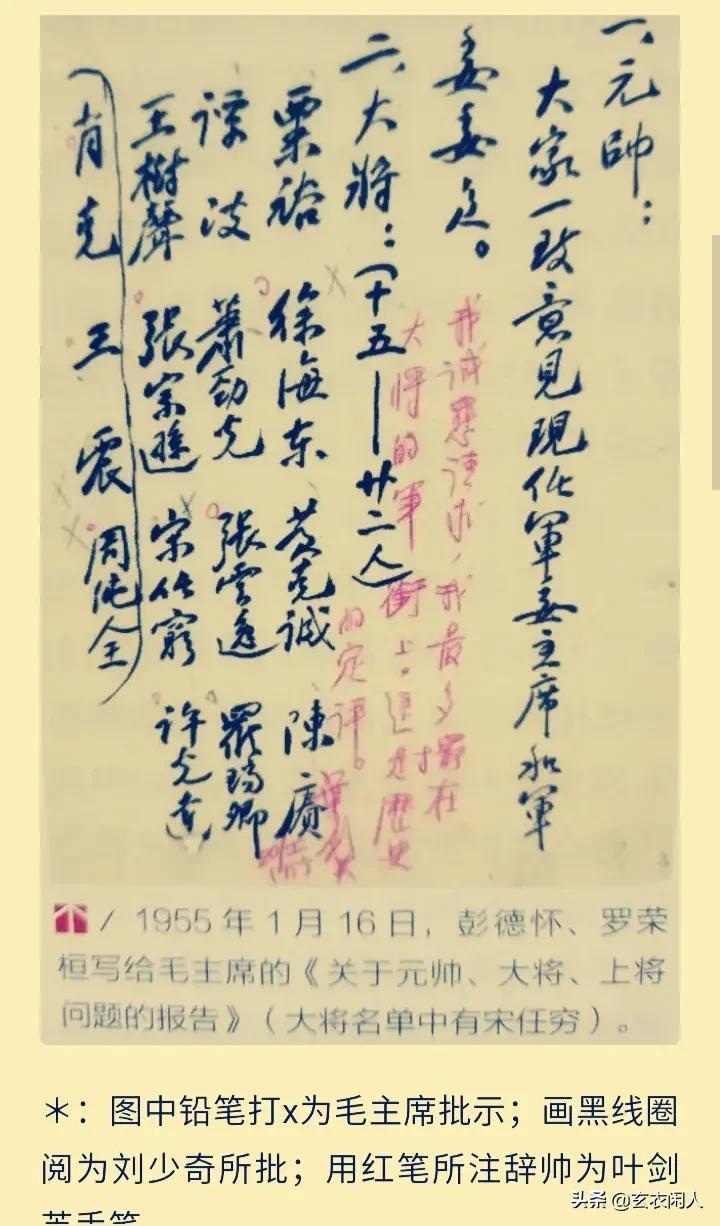 一、元帥：
大家一致意見現任軍委主席和軍
委委員。
二、大將：（十五—廿二人）
粟裕 徐海东 黄克诚 陳賡
譚政 蕭勁光 張雲逸 羅瑞卿
王樹聲 張宗遜 宋任窮 许光達
（肖克 王震 周纯全）
我诚恳请求，我最多摆在
大将的軍銜上。這才是歷史
的定评。
1955年1月16日，彭德怀、罗荣
桓写给毛主席的《关于元帅、大将、上将
问题的报告》（大将名单中有宋任穷）。
＊：图中铅笔打x为毛主席批示；画黑线圈
阅为刘少奇所批；用红笔所注辞帅为叶剑
英手笔
头条 @玄衣闲人